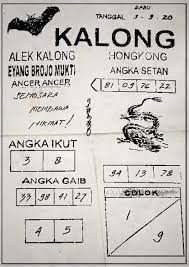 RABU
TANGGAL 3-9-20
KALONG
ALEK KALONG HONGKONG
EYANG BROJO MUKTI
ANGKA SETAN
ANCER ANCER
81 03 76 22
SEMOGARA
MEMBAWA
HIKMAT!
ANGKA IKUT
3 8
94 13 78
ANGKA GAIB
COLOK
33 98 41 27
1 9
4 5